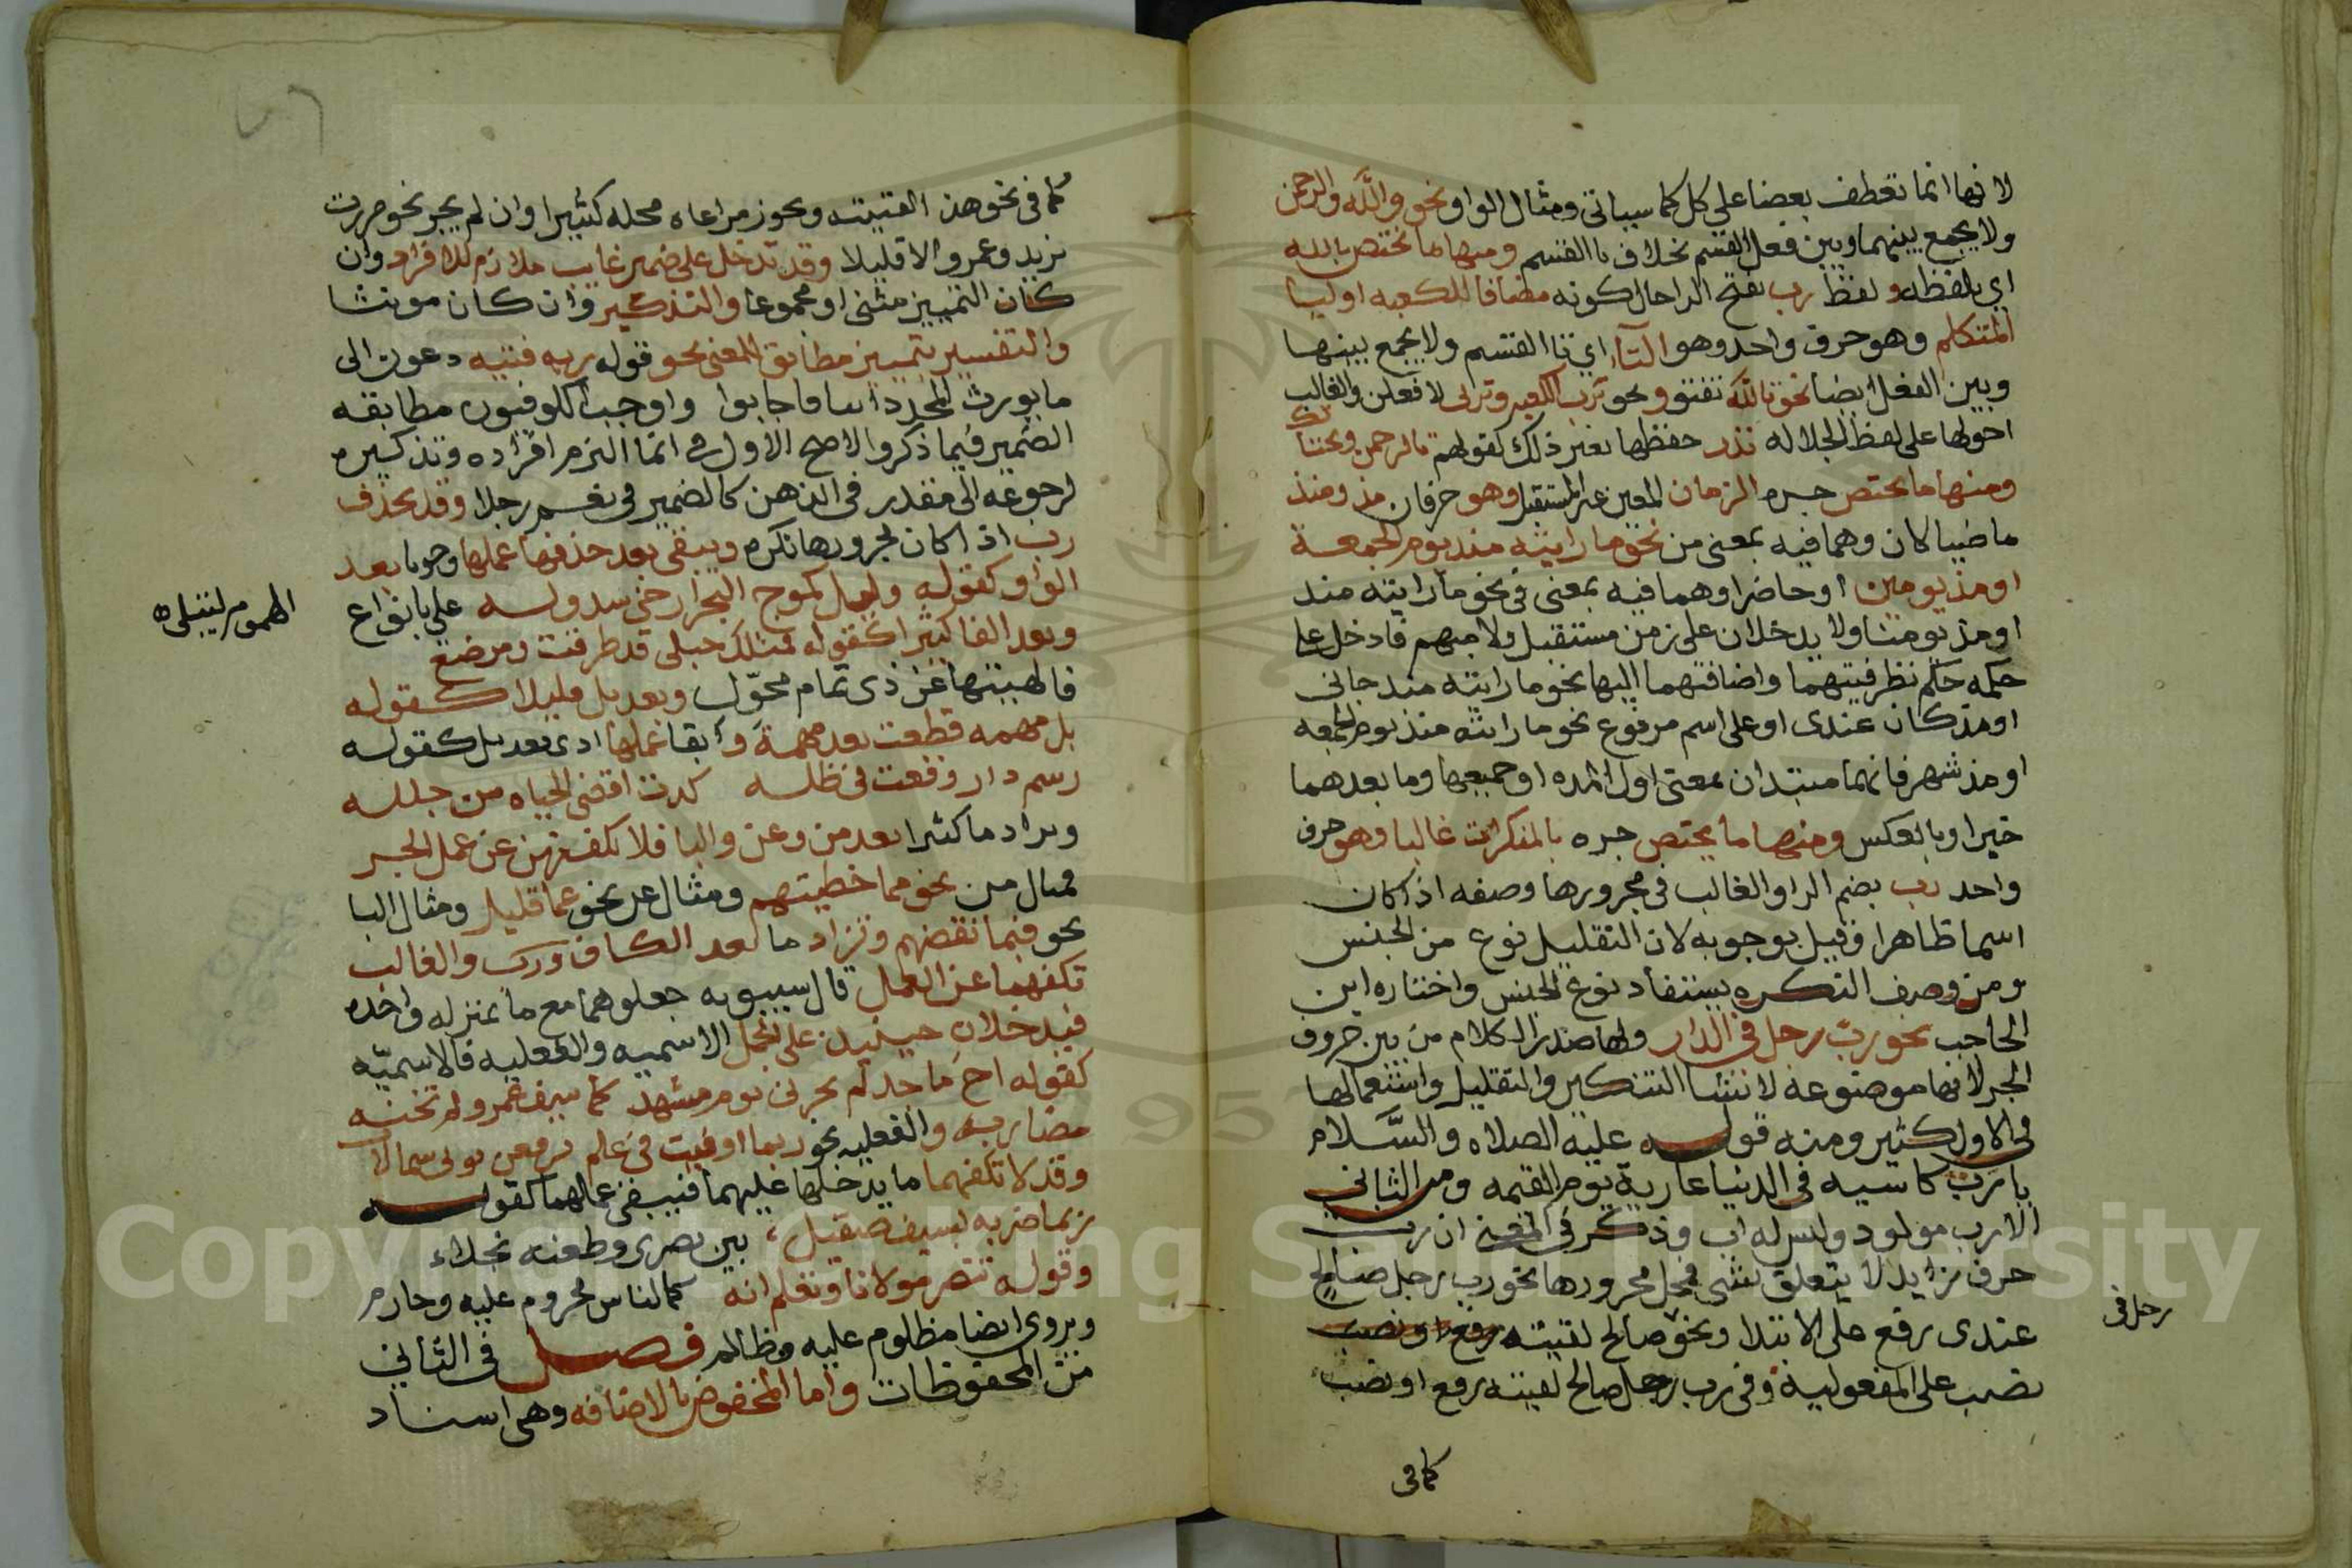 لانها انما تعطف بعضا على كل كما سياتي ومثال الواو نحو والله والرحمن
ولا يجمع بينهما وبين فعل القسم بخلاف با القسم ومنها ما يختص بالله
اي بلفظه ولفظ رب بفتح الراحال كونه مضافا للكعبه او ليا
المتكلم وهو حرف واحد وهو التآء اي تا القسم ولا يجمع بينها
وبين الفعل ايضا نحو تالله تفتو ونحو ترب الكعبه وتربى لافعلن والغالب
دخولها على لفظ الجلاله ندر حفظها بغير ذلك كقولهم تالرحمن وتحياتك
ومنها ما يختص جره الزمان المعين غير المستقبل وهو حرفان مذ ومنذ
ماضيا كان وهما فيه بمعنى من نحو ما رايته منذ يوم الجمعة
او مذ يومين او حاضرا وهما فيه بمعنى في نحو ما رايته منذ
او مذ يومنا ولا يدخلان على زمن مستقبل ولا مبهم فادخل على
جمله حكم بظرفيتهما واضافتهما اليها نحو ما رايته منذ جاني
او مذ كان عندى او على اسم مرفوع نحو ما رايته منذ يوم الجمعه
او مذ شهر فانهما مبتدان بمعنى اول المده او جميعها وما بعدهما
خبر او بالعكس ومنها ما يختص جره بالنكرات غالبا وهو حرف
واحد رب بضم الرا والغالب في مجرورها وصفه اذا كان
اسما ظاهرا وقيل بوجوبه لان التقليل نوع من الجنس
ومن وصف النكره يستفاد نوع الجنس واختاره ابن
الحاجب نحو رب رجل في الدار ولها صدر الكلام من بين حروف
الجر لانها موضوعة لانشا التكثير والتقليل واستعمالها
في الاول كثير ومنه قوله عليه الصلاه والسلام
يا رب كاسيه في الدنيا عارية يوم القيمه ومن الثاني
الا رب مولود وليس له اب وذكر في المغني ان رب
حرف زايد لا يتعلق بشي فمحل مجرورها نحو رب رجل صالح
عندى رفع على الابتدا ونحو صالح لقيته رفع او نصب
رجل في
نصب على المفعولية وفي رب رجل صالح لقيته رفع او نصب
كما في
كما في نحو هذا لقيته ويجوز مراعاه محله كثيرا وان لم يجز نحو مررت
بزيد وعمرو الا قليلا وقد تدخل على ضمير غايب ملازم للافراد وان
كان التمييز مثنى او مجموعا والتذكير وان كان مونثا
والتفسير بتمييز مطابق للمعنى نحو قوله ربه فتيه دعوت الى
ما يورث المجد دايبا فاجابوا واوجب الكوفيون مطابقه
الضمير فيما ذكر والاصح الاول انما التزم افراده وتذكيره
لرجوعه الى مقدر في الذهن كالضمير في نعم رجلا وقد يحذف
رب اذا كان مجرورها نكره ويبقى بعد حذفها عملها وجوبا بعد
الواو كقوله وليل كموج البحر ارخى سدوله على بانواع
الهموم ليبتلى
وبعد الفا كثيرا كقوله فمثلك حبلى قد طرقت ومرضع
فالهيتها عن ذى تمام محوّل وبعد بل قليلا كقوله
بل مهمه قطعت بعد مهمة وابقا عملها بعد بل كقوله
رسم دار وقفت في طلله كدت اقضى الحياه من جلله
ويزاد ما كثيرا بعد من وعن والبا فلا تكفهن عن عمل الجر
فمثال من نحو مما خطيتهم ومثال عن نحو عما قليل ومثال البا
نحو فبما نقضهم وتزاد ما بعد الكاف ورب والغالب
تكفهما عن العمل قال سيبويه جعلوهما مع ما بمنزله واحده
فيدخلان حينيذ على الجمل الاسميه والفعليه فالاسميّه
كقوله اخ ماجد لم يخزنى يوم مشهد كما سيف عمرو لم تخنه
مضاربه والفعليه نحو ربما اوفيت في علم ترفعن ثوبى شمالات
وقد لا تكفهما ما يدخلها عليهما فيبقى عملهما كقوله
ربما ضربه بسيف صقيل بين بصرى وطعنه نجلاء
وقوله ننصر مولانا ونعلم انه كما الناس مجروم عليه وجارم
ويروى ايضا مظلوم عليه وظالم فصل في الثاني
من المخفوظات واما المخفوض بالاضافه وهى اسناد